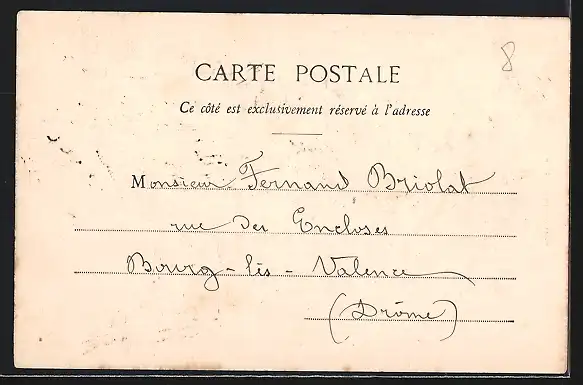 8
CARTE POSTALE
Ce côté est exclusivement réservé à l'adresse
Monsieur Fernand Briolat
rue Des Encloses
Bourg-lès-Valence
(Drôme)